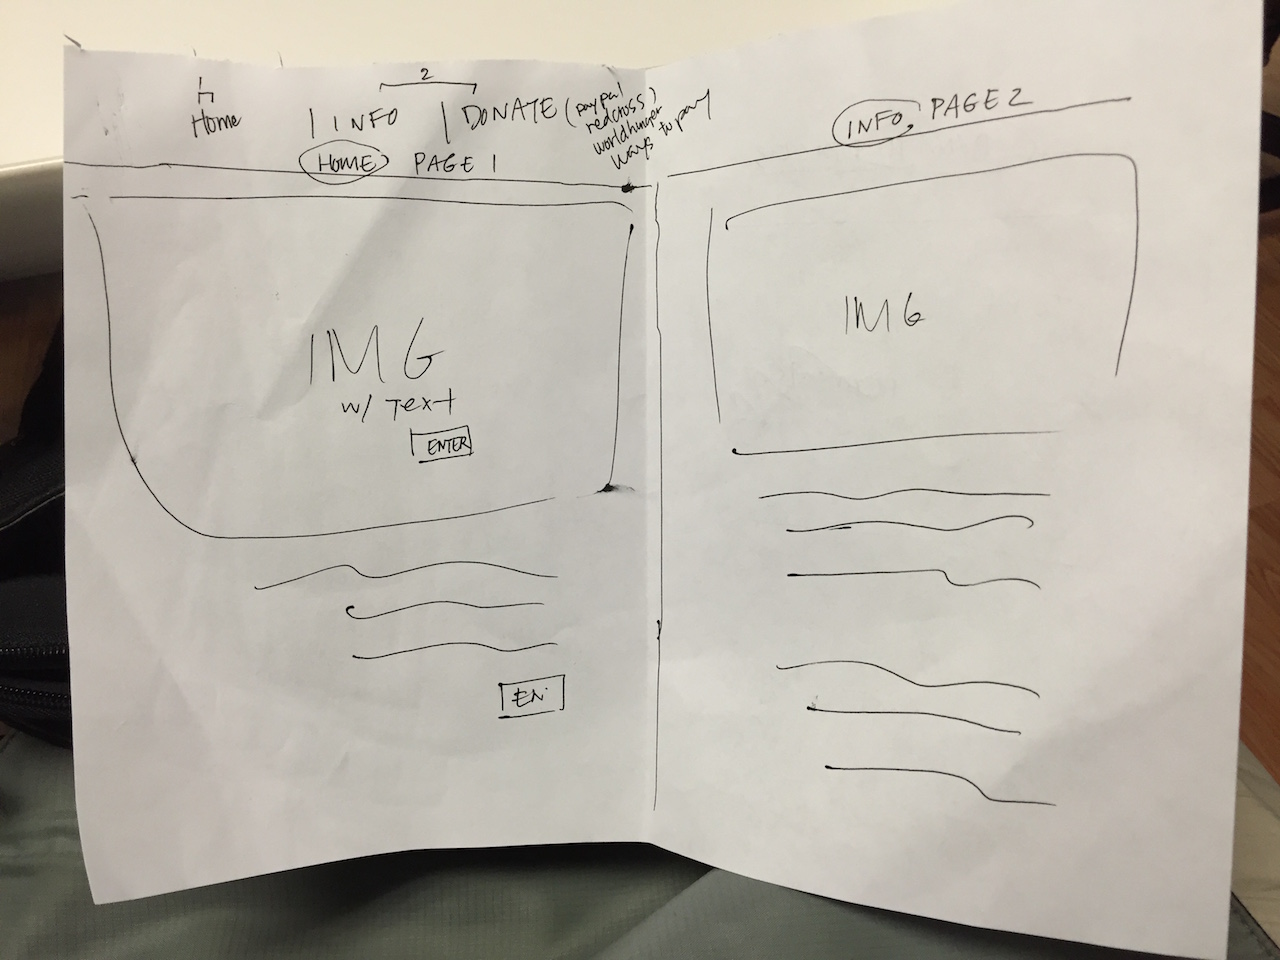 2
Home | INFO | DONATE (paypal
redcross)
worldhunger
ways to pay
HOME PAGE 1
IMG
w/ Text
ENTER
EN.
INFO PAGE 2
IMG